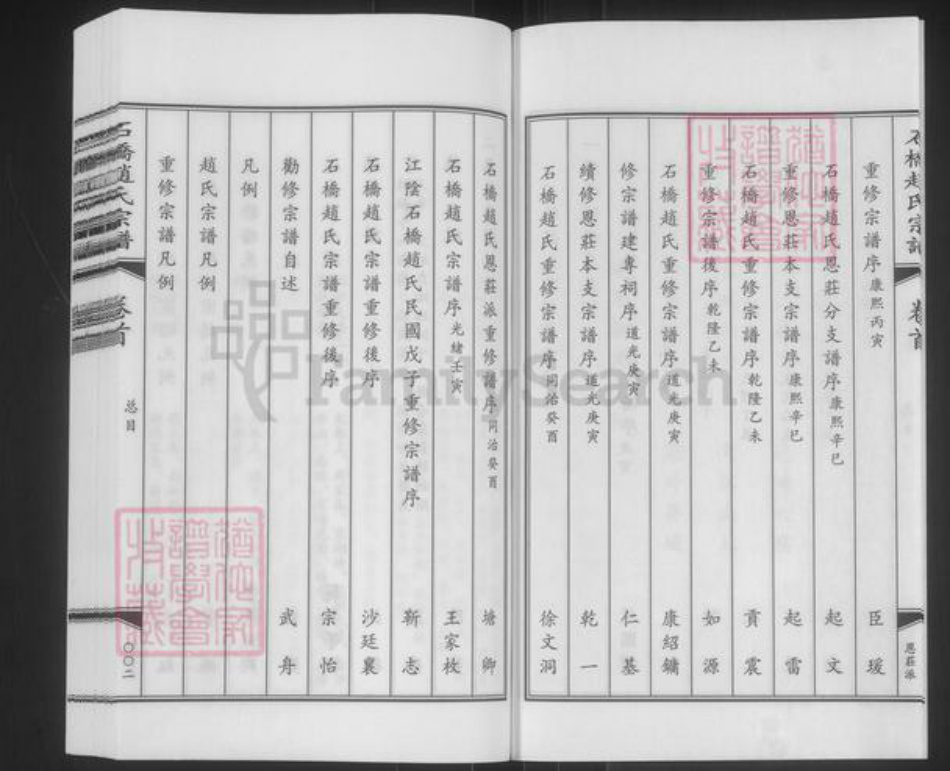 石橋趙氏宗譜
卷首
恩莊派
重修宗譜序康熙丙寅 臣瑗
石橋趙氏恩莊分支譜序康熙辛巳 起文
重修恩莊本支宗譜序康熙辛巳 起雷
石橋趙氏重修宗譜序乾隆乙未 貢震
重修宗譜後序乾隆乙未 如源
石橋趙氏重修宗譜序道光庚寅 康紹鏞
修宗譜建專祠序道光庚寅 仁基
續修恩莊本支宗譜序道光庚寅 乾一
石橋趙氏重修宗譜序同治癸酉 徐文洞
石橋趙氏恩莊派重修譜序同治癸酉 塘卿
石橋趙氏宗譜序光緒壬寅 王家枚
江陰石橋趙氏民國戊子重修宗譜序 靳志
石橋趙氏宗譜重修後序 沙廷襄
石橋趙氏宗譜重修後序 宗怡
勸修宗譜自述 武舟
凡例
趙氏宗譜凡例
重修宗譜凡例
石橋趙氏宗譜
卷首
总目
〇〇二
FamilySearch